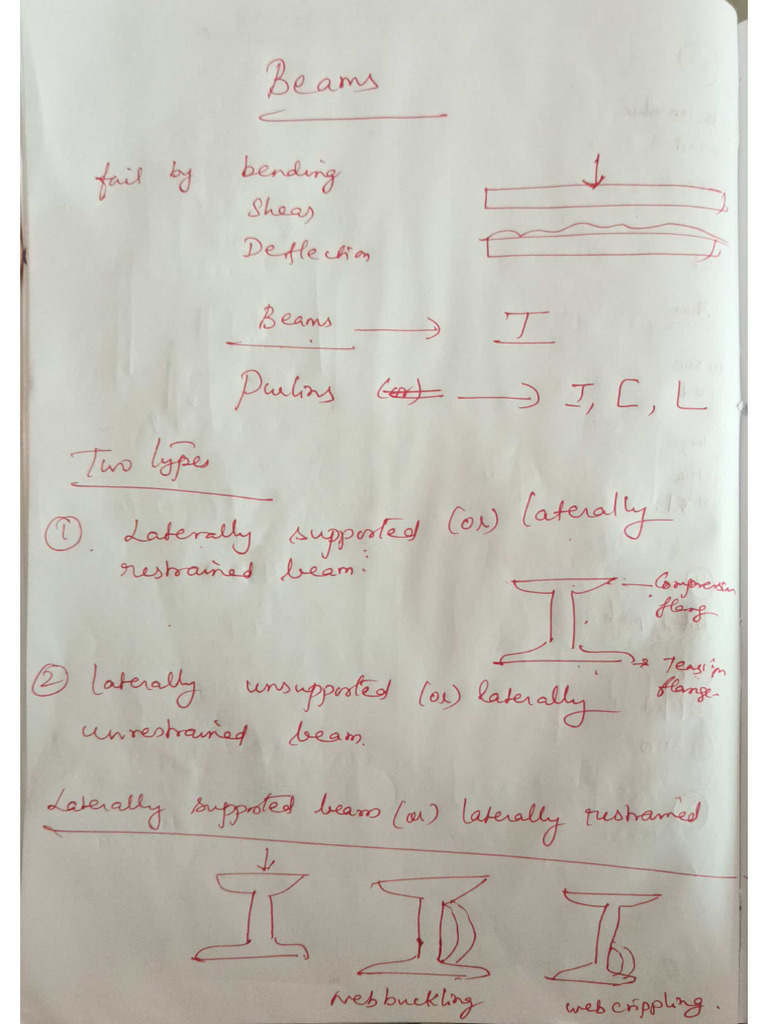 Beams
fail by bending
Shear
Deflection
Beams → I
Purlins (or) → I, C, L
Two types
① Laterally supported (or) laterally
restrained beam:
Compression
flang
Tension
flange
② Laterally unsupported (or) laterally
unrestrained beam.
Laterally supported beam (or) laterally restrained
web buckling
web crippling.